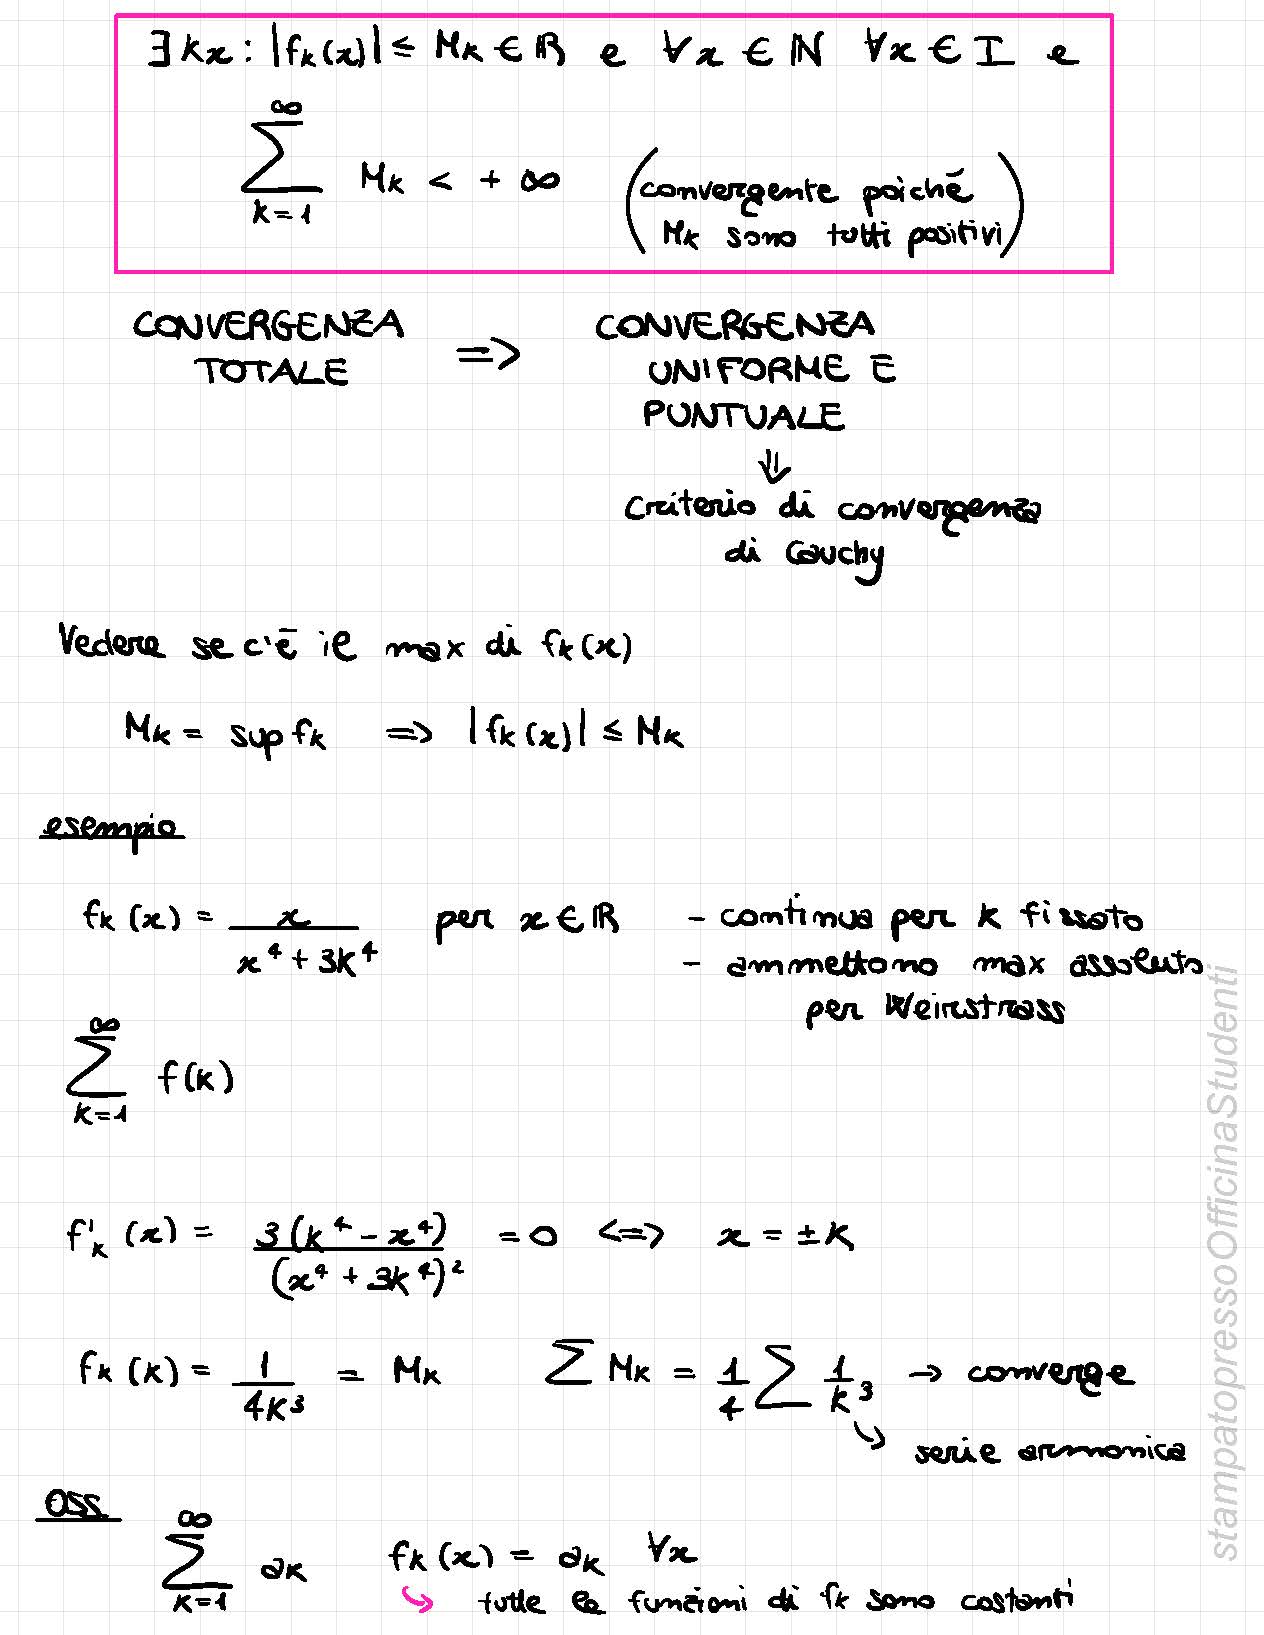 ∃ kx : |fk(x)| ≤ Mk ∈ ℝ e ∀x ∈ ℕ ∀x ∈ I e
∞
∑ Mk < + ∞ (convergente poiché
k=1 Mk sono tutti positivi)
CONVERGENZA TOTALE => CONVERGENZA UNIFORME E PUNTUALE
⇓
Criterio di convergenza
di Cauchy
Vedere se c'è il max di fk(x)
Mk = sup fk => |fk(x)| ≤ Mk
esempio
fk(x) = x / (x⁴ + 3k⁴) per x ∈ ℝ - continua per k fissato
- ammettono max assoluto
per Weirstrass
∞
∑ f(k)
k=1
f'k(x) = 3(k⁴ - x⁴) / (x⁴ + 3k⁴)² = 0 <=> x = ±k
fk(k) = 1 / 4k³ = Mk ∑ Mk = 1/4 ∑ 1/k³ → converge
↳ serie armonica
OSS
∞
∑ ak fk(x) = ak ∀x
k=1 ↳ tutte le funzioni di fk sono costanti
stampatopressoOfficinaStudenti